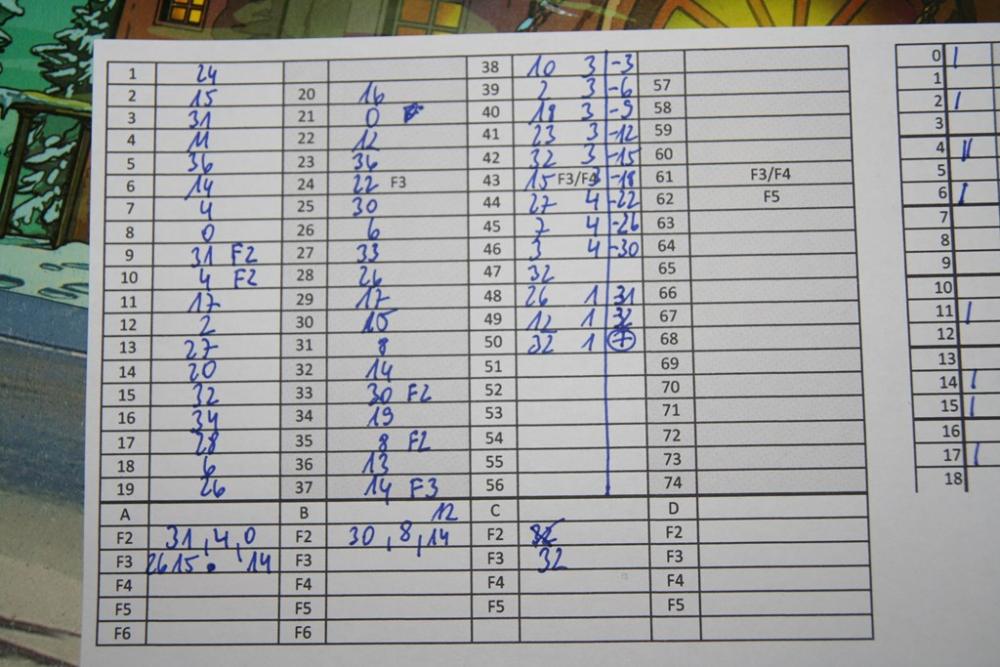 1 24 38 10 3 -3
2 15 20 16 39 2 3 -6 57
3 31 21 0 40 18 3 -9 58
4 11 22 12 41 23 3 -12 59
5 36 23 36 42 32 3 -15 60
6 14 24 22 F3 43 15 F3/F4 3 -18 61 F3/F4
7 4 25 30 44 27 4 -22 62 F5
8 0 26 6 45 7 4 -26 63
9 31 F2 27 33 46 3 4 -30 64
10 4 F2 28 26 47 32 65
11 17 29 17 48 26 1 31 66
12 2 30 15 49 12 1 32 67
13 27 31 8 50 32 1 + 68
14 20 32 14 51 69
15 32 33 30 F2 52 70
16 34 34 19 53 71
17 28 35 8 F2 54 72
18 6 36 13 55 73
19 26 37 14 F3 56 74
A B 12 C D
F2 31, 4, 0 F2 30, 8, 14 F2 F2
F3 26 15 14 F3 F3 32 F3
F4 F4 F4 F4
F5 F5 F5 F5
F6 F6
0
1
2
3
4
5
6
7
8
9
10
11
12
13
14
15
16
17
18